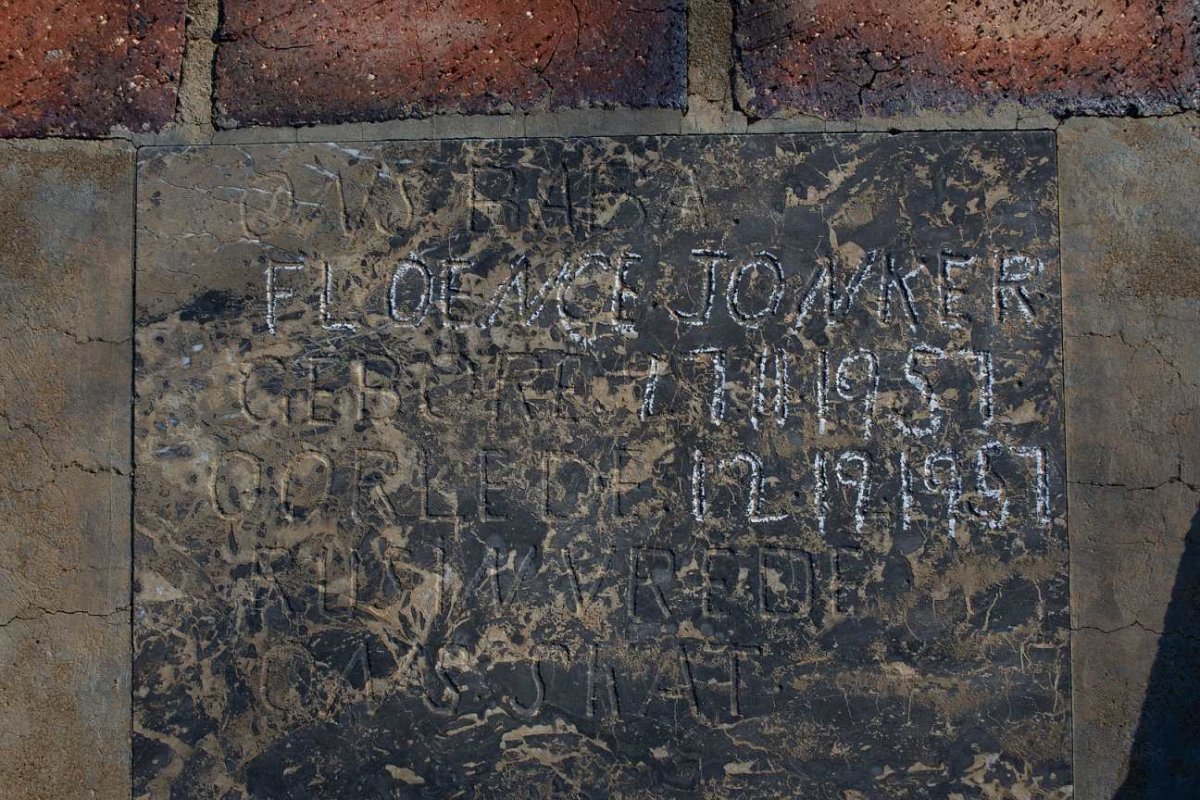 ONS BABA
FLOENCE JONKER
GEBORE 17 11 1957
OORLEDE 12 19 1957
RUS IN VREDE
ONS SKAT